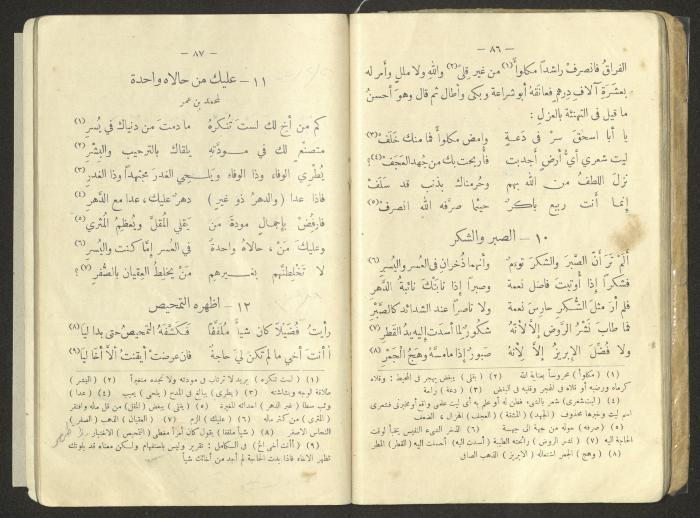 — ٨٦ —
الفراقُ فانصرفْ راشداً مكلوأً(١) من غير قِلى(٢) والله ولا مللٍ وأمر له
بعشَرةِ آلافِ درهمٍ فعانقَهُ أبو شراعة وبكى وأطال ثم قال وهوَ أحسنُ
ما قيل في التهنئة بالعزلِ :
يا أبا اسحقَ سرْ في دَعةٍ وامض مكلوأً فما منك خَلَفْ(٣)
ليت شعري أيُّ أرضٍ أجدبت فأُريحت بك من جُهد العَجَفْ(٤)
نزلَ اللطفُ من الله بهم وحُرمناك بذنب قد سَلَفْ
إنما أنت ربيع باكرٌ حيثما صرَّفه الله انصرفْ(٥)
١٠ — الصبر والشكر
ألَمْ ترَ أنّ الصَّبرَ والشكرَ توءمٌ وأنهما ذُخرانِ في العُسر واليُسرِ(٦)
فشكراً إذا أُوتيتَ فاضلَ نعمة وصبراً إذا نابَتكَ نائبةُ الدَّهرِ
فلم أرَ مثلَ الشُّكرِ حارسَ نعمة ولا ناصراً عند الشدائد كالصَّبْرِ
فما طابَ نَشرُ الرَّوض إلاّ لأنّهُ شكورٌ لما أسدَت إليهِ يدُ القَطرِ(٧)
ولا فُضِّلَ الإبريزُ إلاّ لأنهُ صبورٌ إذا ما مسَّهُ وهَجُ الجَمْرِ(٨)
(١) (مكلوأً) محروساً بعناية الله (٢) (بقلى) يبغض بهجر في المحيط : وقلاه
كرماه ورضيه أو قلاه في الهجر وقليه في البغض (٣) (دعة) راحة
(٤) (ليت شعري) شعر بالشيء فطن له أو علم به أي ليت علمي واقع أو مخبرني فشعري
اسم ليت وخبرها محذوف (الجهد) المشقة (العجف) الهزال، الضعف
(٥) (صرفه) حوله من جهة الى جهة (٦) الذخر الشيء النفيس يخبأ لوقت
الحاجة اليه (٧) (نشر الروض) رائحته الطيبة (أسدت اليه) أحسنت اليه (القطر) المطر
(٨) (وهج) الجمر اشتعاله (الابريز) الذهب الصافي
— ٨٧ —
١١ — عليك من حالاه واحدة
لمحمد بن عمر
كم من أخٍ لك لستَ تُنكرهُ ما دمتَ من دنياك في يُسرِ(١)
متصنِّعٍ لك في مودَّتهِ يلقاك بالترحيب والبِشْرِ(٢)
يُطْرِي الوفاءَ وذا الوفاء ويَلـحى الغدرَ مجتهداً وذا الغدرِ(٣)
فاذا عدا (والدهرُ ذو غِيَرٍ) دهرٌ عليك، عدا مع الدَّهرِ(٤)
فارفُضْ بإجمالٍ مودةَ من يقلي المُقلَّ ويُعظمُ المُثري(٥)
وعليكَ مَنْ، حالاهُ واحدةٌ في العُسر إمّا كنتَ واليُسرِ(٦)
لا تَخْلِطنّهُم بغيـرهِم مَنْ يخلِطُ العِقيان بالصُّفرِ(٧)؟
١٢ — أظهره التمحيص
رأيتُ فُضَيْلاً كان شيأً مُلَفَّفاً فكشَّفهُ التمحيصُ حتى بدا ليا(٨)
أأنتَ أخي ما لم تكن ليَ حاجةٌ فان عرضتْ أيقنتُ ألاّ أخا ليا(٩)
(١) (لست تنكره) يريد لا ترتاب في مودته ولا تجده متغيراً (٢) (البشر)
طلاقة الوجه وبشاشته (٣) (يطري) يبالغ في المدح (يلحى) يعيب (٤) (عدا)
وثب سطا (غير الدهر) احداثه المغيرة (٥) (يقلى) يبغض (المقل) من قل ماله وافتقر
(المثري) من كثر ماله (٦) (عليك) الزم (٧) (العقيان) الذهب (الصفر)
النحاس الأصفر (٨) (شيأ ملففا) يقول كان أمراً مغطى (التمحيص) الاختبار
(٩) (أأنت أخي الخ) في الكامل : تقرير وليس باستفهام ولسكن معناه قد بلوتك
تظهر الاخاء فاذا بدت الحاجة لم أجد من اخائك شيأ